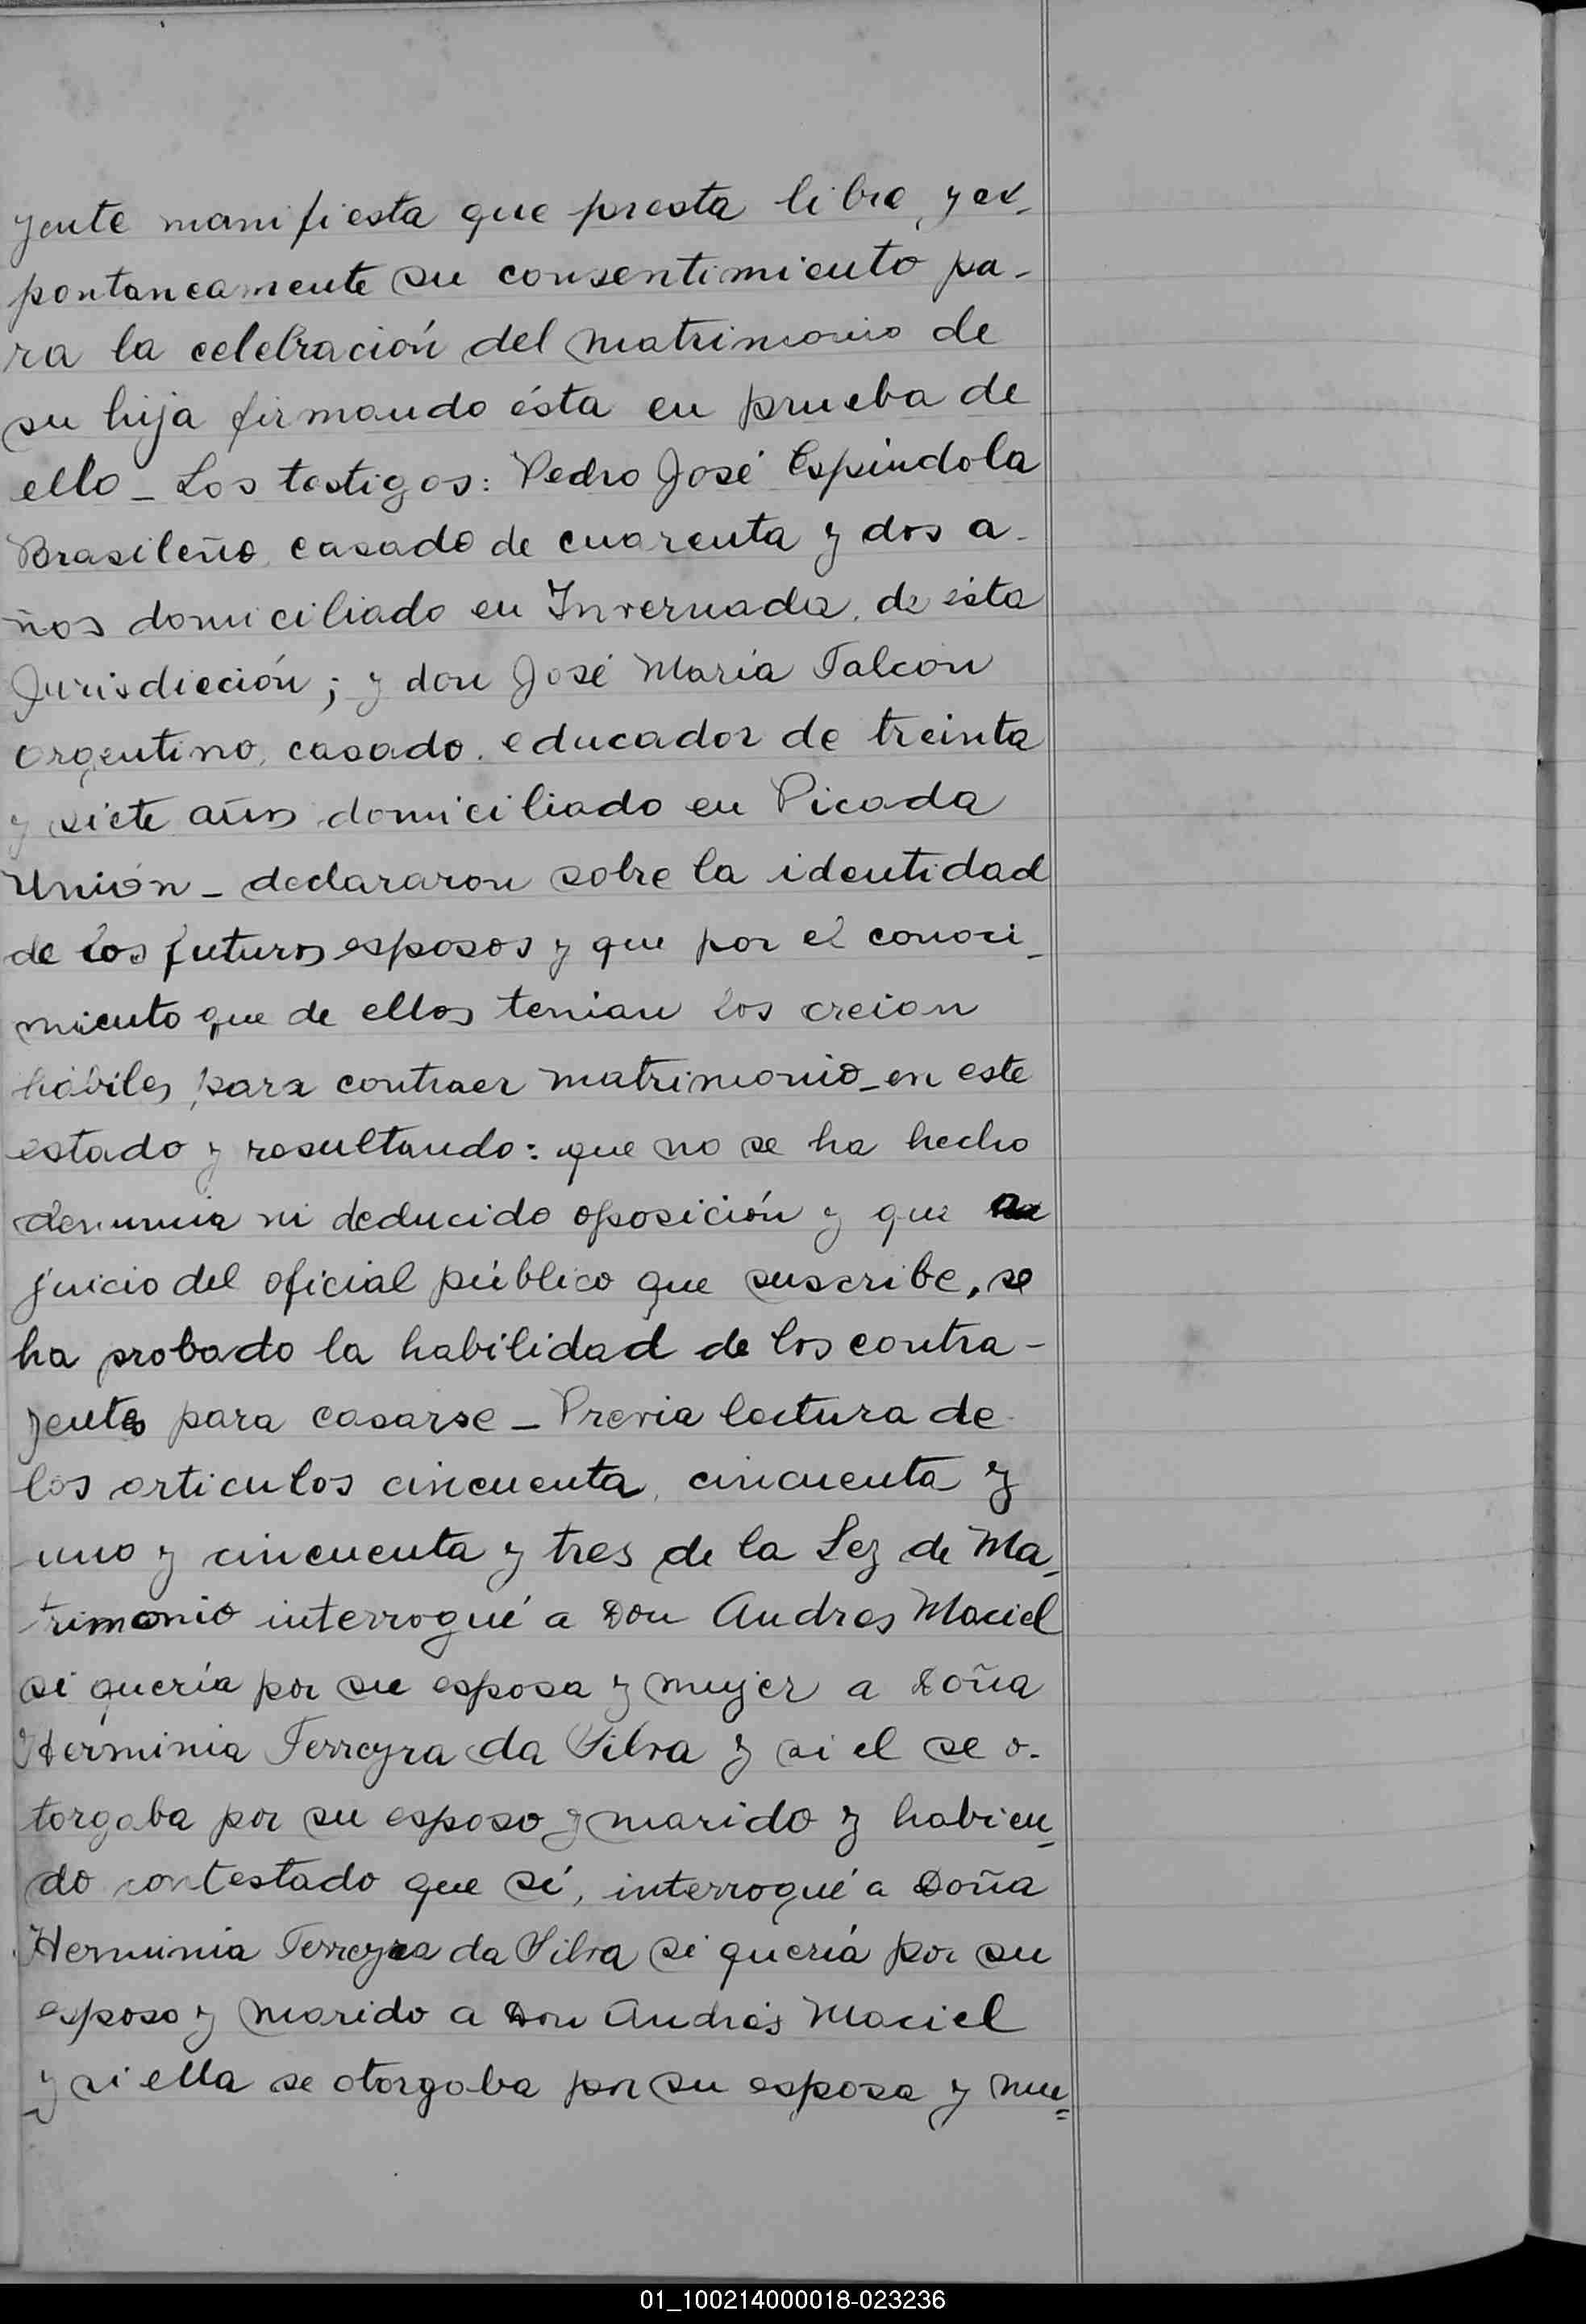 yente manifiesta que presta libre, y ex-
pontaneamente su consentimiento pa-
ra la celebración del matrimonio de
su hija firmando ésta en prueba de
ello - Los testigos: Pedro José Espindola
Brasileño, casado de cuarenta y dos a-
ños domiciliado en Invernada, de ésta
Jurisdicción; y don José María Falcon
argentino, casado, educador de treinta
y siete años domiciliado en Picada
Unión - declararon sobre la identidad
de los futuros esposos y que por el conoci-
miento que de ellos tenian los creian
hábiles para contraer matrimonio - en este
estado y resultando: que no se ha hecho
denuncia ni deducido oposición y que a
juicio del oficial público que suscribe, se
ha probado la habilidad de los contra-
yentes para casarse - Previa lectura de
los articulos cincuenta, cincuenta y
uno y cincuenta y tres de la Ley de Ma-
trimonio interrogué a Don Andres Maciel
si quería por su esposa y mujer a Doña
Herminia Ferreyra da Silva y si el se o-
torgaba por su esposo y marido y habien-
do contestado que sí, interrogué a Doña
Herminia Ferreyra da Silva si quería por su
esposo y marido a Don Andrés Maciel
y si ella se otorgaba por su esposa y mu=
01_100214000018-023236